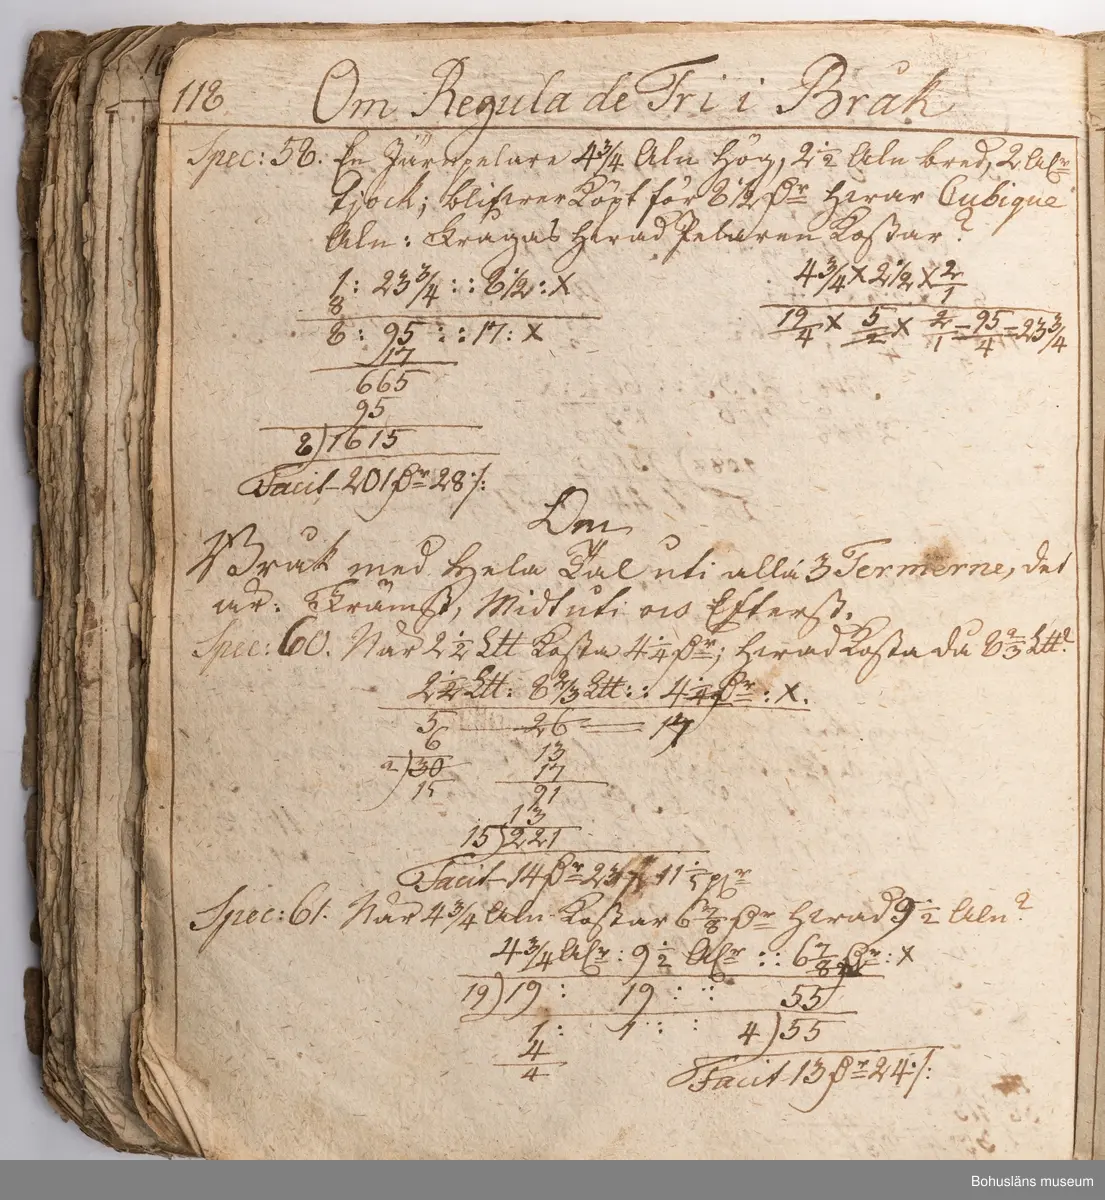 118 Om Regula de Tri i Bråk
Spec: 58. En Järnpelare 4 3/4 Aln hög, 2 1/2 Aln bred, 2 Alr
tjock; blifver Köpt för 8 1/2 Rr hvar Cubique
Aln: Frågas hvad Pelaren Kostar?
1 : 23 3/4 : : 8 1/2 : X 4 3/4 X 2 1/2 X 2/1
8
8 : 95 : : 17 : X 19/4 X 5/2 X 2/1 = 95/4 = 23 3/4
17
665
95
8) 1615
Facit 201 Rr 28 /:
Om
Bråk med Hela Tal uti alla 3 Termerne, det
är: Främst, Midtuti och Efterst.
Spec: 60. När 2 1/2 Ltt Kosta 4 1/4 Rr; hvad Kosta då 8 2/3 Ltt?
2 1/2 Ltt : 8 2/3 Ltt : : 4 1/4 Rr : X.
5 26 17
6 13
2) 30 17
15 91
13
15) 221
Facit 14 Rr 23 / 11 1/5
Spec: 61. När 4 3/4 Aln Kostar 6 7/8 Rr hvad 9 1/2 Aln?
4 3/4 Alr : 9 1/2 Alr : : 6 7/8 Rr : X
19) 19 : 19 : : 55
1 : 1 : : 4) 55
4
4 Facit 13 Rr 24 /:
Bohusläns museum